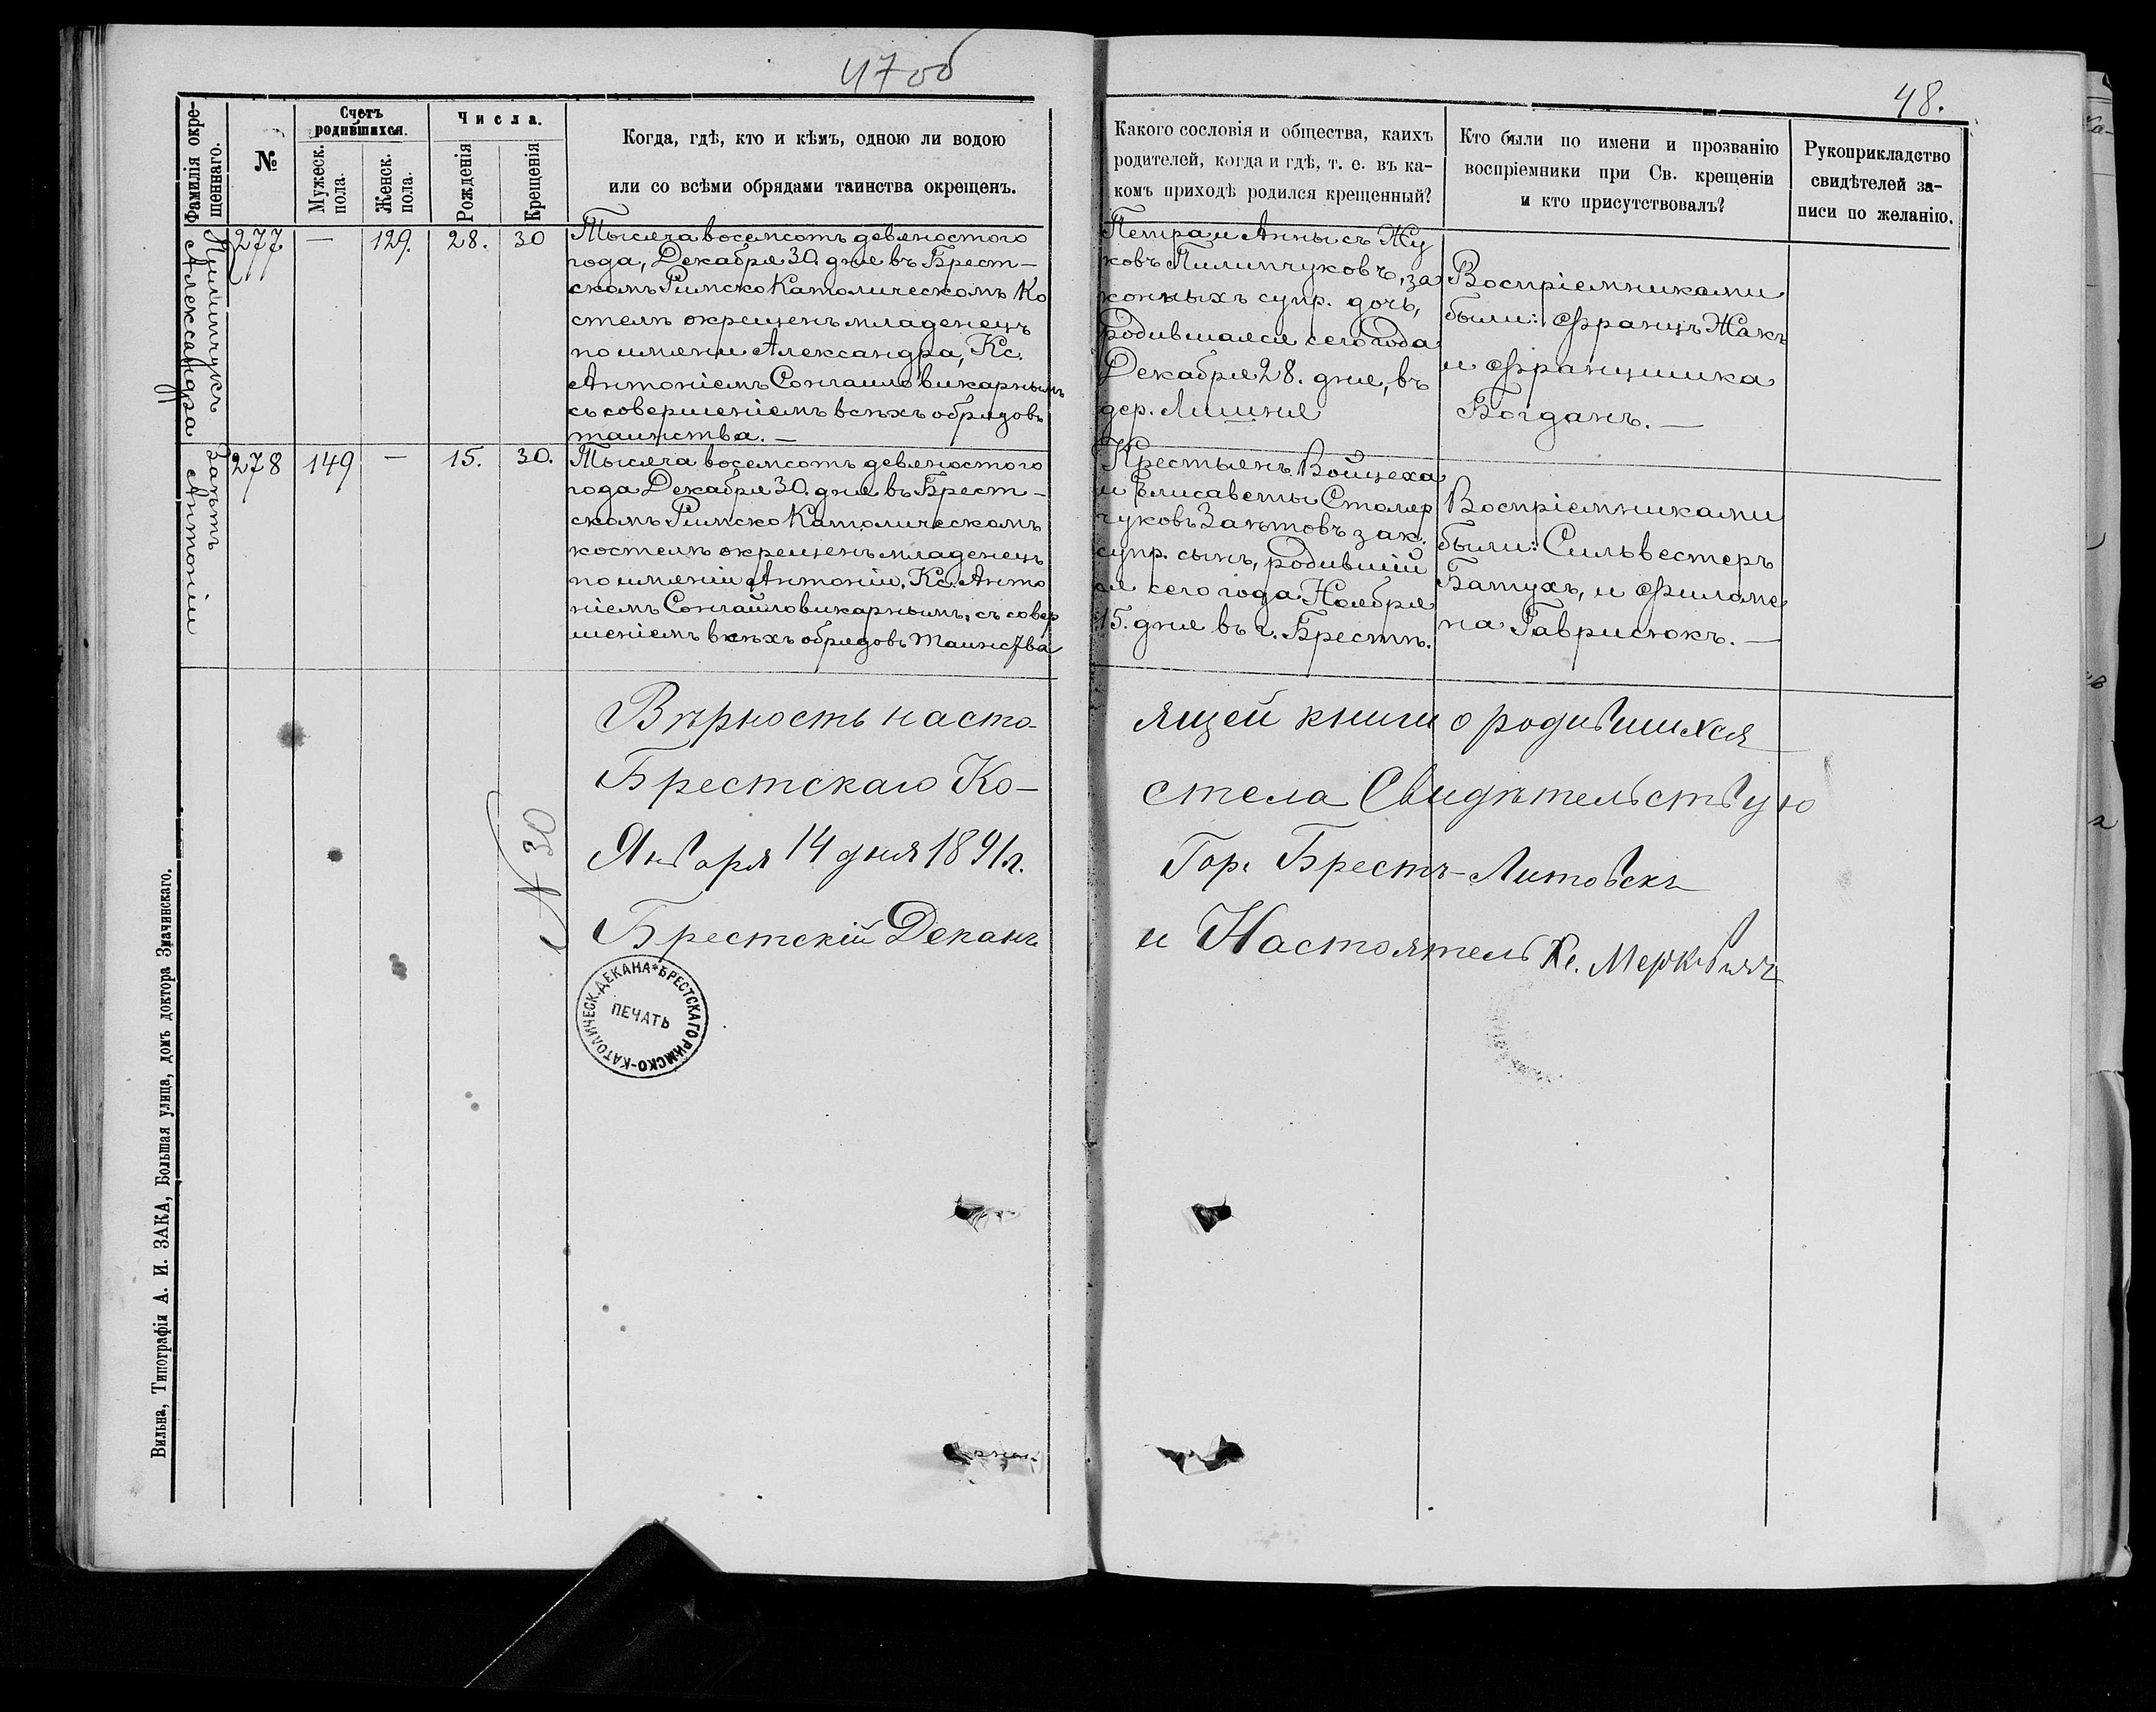 47 об
48.
Фамилія окре-
щеннаго.
№
Счетъ
родившихся.
Мужеск.
пола.
Женск.
пола.
Числа.
Рожденія
Крещенія
Когда, гдѣ, кто и кѣмъ, одною ли водою
или со всѣми обрядами таинства окрещенъ.
Какого сословія и общества, каихъ
родителей, когда и гдѣ, т. е. въ ка-
комъ приходѣ родился крещенный?
Кто были по имени и прозванію
воспріемники при Св. крещеніи
и кто присутствовалъ?
Рукоприкладство
свидѣтелей за-
писи по желанію.
Пилипчукъ
Александра
277
—
129.
28.
30
Тысяча восемсотъ девяностого
года, Декабря 30. дня въ Брест-
скомъ Римско Католическомъ Ко
стелѣ окрещенъ младенецъ
по имени Александра, Кс.
Антоніемъ Сонгайло викарнымъ
съ совершеніемъ всѣхъ обрядовъ
таинства. —
Петра и Анны съ Жу
ковъ Пилипчуковъ, за
конныхъ супр. дочь,
родившаяся сего года
Декабря 28. дня, въ
дер. Лишня
Воспріемниками
были: Францъ Жакъ
и Францишка
Богданъ. —
Занѣтъ
Антоній
278
149
—
15.
30.
Тысяча восемсотъ девяностого
года Декабря 30. дня въ Брест-
скомъ Римско Католическомъ
костелѣ окрещенъ младенецъ
по именіи Антоніи, Кс. Анто
ніемъ Сонгайло викарнымъ, съ совер
шеніемъ всѣхъ обрядовъ таинства
Крестьянъ Войцеха
и Елисаветы Столяр
чуковъ Занѣтовъ зак.
супр. сынъ, родившій
ся сего года Ноября
15. дня въ г. Брестѣ.
Воспріемниками
были: Сильвестеръ
Батухъ, и Филоме
на Гаврисюкъ. —
Вѣрность насто-
ящей книги о родившихся
Брестскаго Ко-
стела Свидѣтельствую
№ 30
Января 14 дня 1891 г.
Гор. Брестъ-Литовскъ
Брестскій Деканъ
и Настоятель Кс.
БРЕСТСКАГО РИМСКО-КАТОЛИЧЕСК. ДЕКАНА *
ПЕЧАТЬ
Вильна, Типографія А. И. ЗАКА, Большая улица, домъ доктора Змачинскаго.